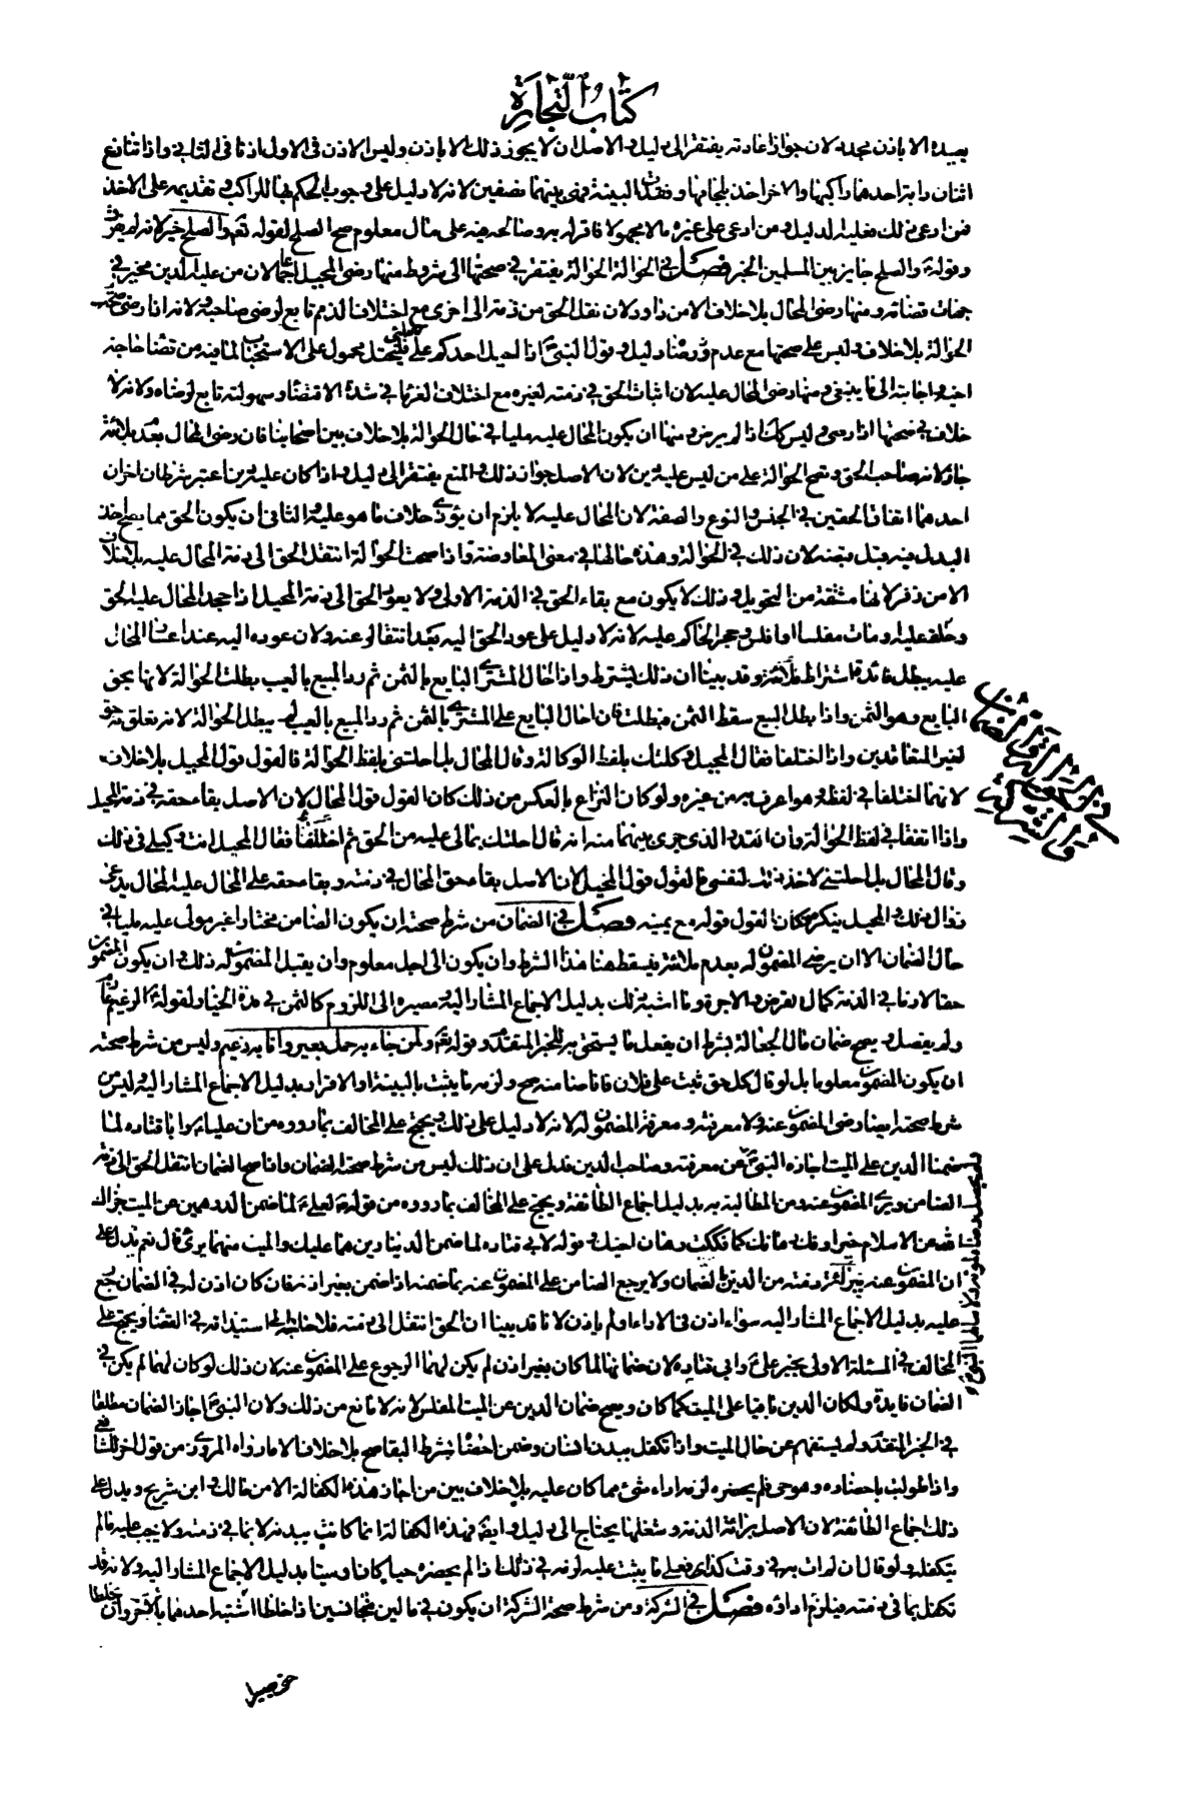 كتاب التجارة
يعيده الا باذن مجدد لان جواز اعادته يفتقر الى دليل و الاصل ان لا يجوز ذلك الا باذن وليس الاذن فى الاول اذنا فى الثانى واذا تنازع
اثنان دابة احدهما راكبها والاخر اخذ بلجامها وفقدت البينة فهى بينهما نصفين لانه لا دليل على وجوب الحكم بها للراكب و تقديمه على الاخذ
فمن ادعى ذلك فعليه الدليل و من ادعى على غيره مالا مجهولا فاقر له به وصالحه منه على مال معلوم صح الصلح لقوله تعم والصلح خير لانه لم يفرق
وقوله ع والصلح جايز بين المسلمين الخبر فصل فى الحوالة الحوالة يفتقر فى صحتها الى شروط منها رضى المحيل اجماعا لان من عليه الدين مخير فى
جهات قضائه و منها رضى المحال بلا خلاف الا من داود لان نقل الحق من ذمة الى اخرى مع اختلاف الذمم تابع لرضى صاحبه و لانه اذا رضى صحت
الحوالة بلا خلاف و ليس على صحتها مع عدم رضاه دليل و قول النبى ص اذا احيل احدكم على ملئ فليحتل محمول على الاستحباب لما فيه من قضاء حاجة
اخيه و اجابته الى ما يبتغى و منها رضى المحال عليه لان اثبات الحق فى ذمته لغيره مع اختلاف الغرماء فى شدة الاقتضاء و سهولته تابع لرضاه و لانه لا
خلاف فى صحتها اذا رضى و ليس كك اذا لم يرض و منها ان يكون المحال عليه مليا فى حال الحوالة بلا خلاف بين اصحابنا فان رضى المحال بعدم ملائته
جاز لانه صاحب الحق و تصح الحوالة على من ليس عليه دين لان الاصل جواز ذلك و المنع يفتقر الى دليل و اذا كان عليه دين اعتبر شرطان اخران
احدهما اتفاق الحقين فى الجنس و النوع و الصفة لان المحال عليه لا يلزم ان يؤدى خلاف ما هو عليه و الثانى ان يكون الحق مما يصح اخذ
البدل فيه قبل قبضه لان ذلك فى الحوالة و هذه حالها فى معنى المعاوضة و اذا صحت الحوالة انتقل الحق الى ذمة المحال عليه بلا خلاف
الا من زفر لانها مشتقة من التحويل و ذلك لا يكون مع بقاء الحق فى الذمة الاولى و لا يعود الحق الى ذمة المحيل اذا جحد المحال عليه الحق
و حلف عليه او مات مفلسا او افلس و حجر الحاكم عليه لانه لا دليل على عود الحق اليه بعد انتقاله عنه و لان عوده اليه عند اعسار المحال
عليه يبطل فائدة اشتراط ملائته و قد بينا ان ذلك يشترط و اذا احال المشترى البايع بالثمن ثم رد المبيع بالعيب بطلت الحوالة لانها بحق
البايع و هو الثمن و اذا بطل البيع سقط الثمن فبطلت فان احال البايع على المشترى بالثمن ثم رد المبيع بالعيب لم يبطل الحوالة لانه تعلق به حق
لغير المتعاقدين و اذا اختلفا فقال المحيل وكلتك بلفظ الوكالة و قال المحال بل احلتنى بلفظ الحوالة فالقول قول المحيل بلا خلاف
لانهما اختلفا فى لفظه و هو اعرف به من غيره و لو كان النزاع بالعكس من ذلك كان القول قول المحال لان الاصل بقاء حقه فى ذمة المحيل
و اذا اتفقا فى لفظ الحوالة و ان القدر الذى جرى بينهما منه انه قال احلتك بمالى عليه من الحق ثم اختلفا فقال المحيل انت وكيلى فى ذلك
و قال المحال بل احلتنى لاخذ ذلك لنفسى فالقول قول المحيل لان الاصل بقاء حق المحال فى ذمته و بقاء حقه على المحال عليه و المحال يدعى
زوال ذلك و المحيل ينكره فكان القول قوله مع يمينه فصل فى الضمان من شرط صحته ان يكون الضامن مختارا غير مولى عليه مليا فى
حال الضمان الا ان يرضى المضمون له بعدم ملائته فيسقط هذا الشرط و ان يكون الى اجل معلوم و ان يقبل المضمون له ذلك و ان يكون المضمون
حقا لازما فى الذمة كمال القرض و الاجرة و ما اشبه ذلك بدليل الاجماع المشار اليه و مصيره الى اللزوم كالثمن فى مدة الخيار لقوله ع الزعيم غارم
و لم يفصل و يصح ضمان مال الجعالة بشرط ان يفعل ما يستحق به للخبر المتقدم و قوله تعم و لمن جاء به حمل بعير و انا به زعيم و ليس من شرط صحته
ان يكون المضمون معلوما بل لو قال كل حق ثبت على فلان فانا ضامنه صح و لزمه ما يثبت بالبينة او الاقرار بدليل الاجماع المشار اليه و ليس من
شرط صحته ايضا رضى المضمون عنه و لا معرفته و معرفة المضمون له لانه لا دليل على ذلك و يحتج على المخالف بما رووه من ان عليا ع و ابا قتادة لما
ضمنا الدين على الميت اجازه النبى ص عن معرفته و صاحب الدين فدل على ان ذلك ليس من شرط صحة الضمان و اذا صح الضمان انتقل الحق الى ذمة
الضامن و برئ المضمون عنه من المطالبة به بدليل اجماع الطائفة و يحتج على المخالف بما رووه من قوله ص لعلى ع لما ضمن الدرهمين عن الميت جزاك
الله عن الاسلام خيرا و فك رهانك كما فككت رهان اخيك و قوله لابى قتادة لما ضمن الدينارين هما عليك و الميت منهما برئ قال نعم فدل على
ان المضمون عنه تبرأ ذمته من الدين بالضمان و لا يرجع الضامن على المضمون عنه بما ضمنه اذا ضمن بغير اذنه فان كان اذن له فى الضمان رجع
عليه بدليل الاجماع المشار اليه سواء اذن فى الاداء او لم ياذن لانا قد بينا ان الحق انتقل الى ذمته فلا حاجة الى استيذانه فى القضاء و يحتج على
المخالف فى المسئلة الاولى بخبر على ع و ابى قتادة لان ضمانهما لما كان بغير اذن لم يكن لهما الرجوع على المضمون عنه لان ذلك لو كان لهما لم يكن فى
الضمان فايدة و لكان الدين باقيا على الميت كما كان و يصح ضمان الدين عن الميت المفلس لانه لا مانع من ذلك و لان النبى ص اجاز الضمان مطلقا
فى الخبر المتقدم و لم يستفهم عن حال الميت و اذا تكفل ببدن انسان و ضمن احضاره بشرط البقا صح بلا خلاف الا ما رواه المروزى من قول اخر للشافعى
و اذا طولب باحضاره و هو حى فلم يحضره لزمه اداء شئ مما كان عليه بلا خلاف بين من اجاز هذه الكفالة الا من مالك و ابن شريح و يدل على
ذلك اجماع الطائفة لان الاصل برائة الذمة و شغلها يحتاج الى دليل و ايضا فهذه الكفالة انما كانت ببدنه لا بما فى ذمته و لا يجب عليه مالم
يتكفل به و لو قال ان لم ات به فى وقت كذا فعلى ما يثبت عليه لزمه فى ذلك اذا لم يحضره حيا كان او ميتا بدليل الاجماع المشار اليه و لانه قد
تكفل بما فى ذمته فيلزم اداؤه فصل فى الشركة و من شرط صحة الشركة ان يكون فى مالين متجانسين اذا خلطا اشتبه احدهما بالاخر و ان يخلطا
فى الحوالة و الضمان
و الشركة
حتى يصيرا